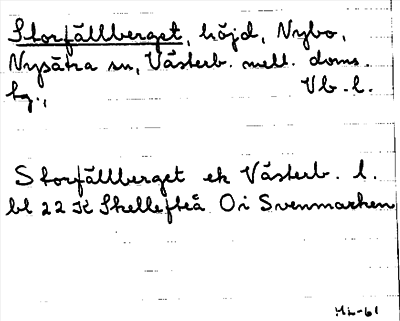 Storfällberget, höjd, Nybo,
Nysätra sn, Västerb. mell. doms.
hg., Vb. l.
Storfällberget ek Västerb. l.
bl 22 K Skellefteå Oi Svenmarken